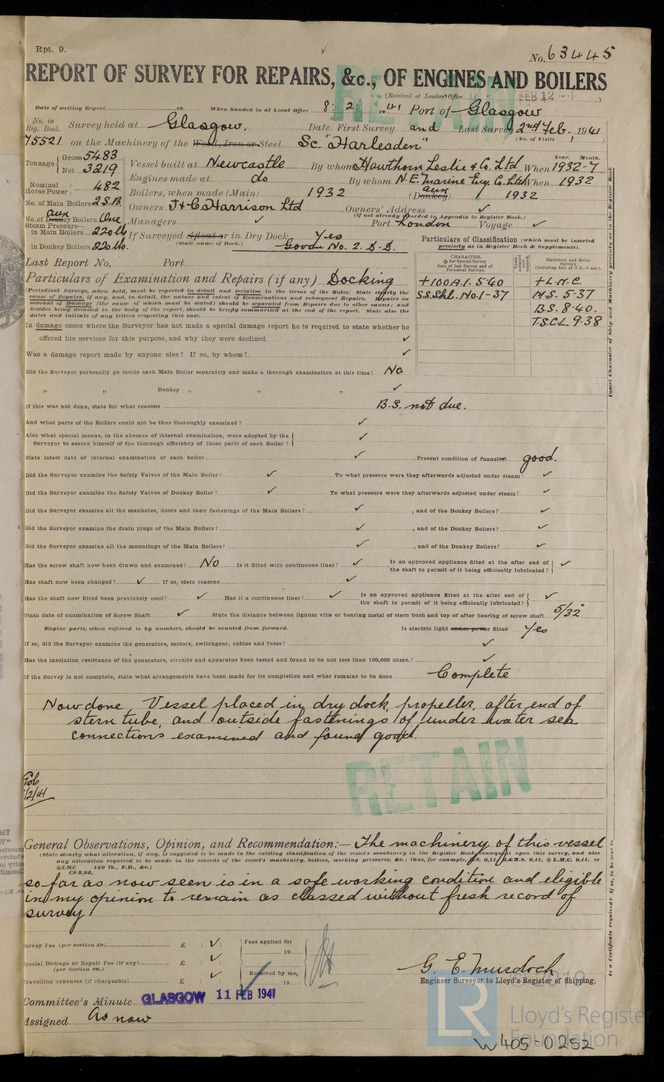 Rpt. 9.
No. 63445
REPORT OF SURVEY FOR REPAIRS, &c., OF ENGINES AND BOILERS
(Received at London Office FEB 12 )
Date of writing Report 19 When handed in at Local Office 8. 2. 1941 Port of Glasgow
No. in Reg. Book. Survey held at Glasgow. Date. First Survey and Last Survey 2nd Feb. 1941
(No. of Visits )
75521 on the Machinery of the Wood, Iron or Steel Sc. "Harleaden"
Tonnage Gross 5483
Net 3219
Vessel built at Newcastle By whom Hawthorn Leslie & Co. Ltd When 1932-7
Year. Month.
Nominal Horse Power 482
Engines made at do By whom N.E. Marine Eng. Co. Ltd When 1932
Boilers, when made (Main) 1932 (Donkey) aux 1932
No. of Main Boilers 2 S.B. Owners J & C Harrison Ltd Owners' Address ✓
(if not already recorded in Appendix to Register Book.)
No. of Donkey Boilers aux One. Managers ✓ Port London Voyage ✓
Steam Pressure in Main Boilers 220 lb
in Donkey Boilers 220 lb.
If Surveyed Afloat or in Dry Dock Yes
(State name of Dock.) Govan No. 2. D.D.
Particulars of Classification (which must be inserted precisely as in Register Book & Supplements).
Last Report No. Port
Particulars of Examination and Repairs (if any) Docking
+100A1. 5.40
S.S. Shl. No. 1-37
+L.M.C.
M.S. 5.37
B.S. 8.40.
T.S.CL 9.38
In damage cases where the Surveyor has not made a special damage report he is required to state whether he
offered his services for this purpose, and why they were declined ✓
Was a damage report made by anyone else? If so, by whom? ✓
Did the Surveyor personally go inside each Main Boiler separately and make a thorough examination at this time? No
" " Donkey " " " " ✓
If this was not done, state for what reasons B.S. not due.
And what parts of the Boilers could not be thoroughly examined? ✓
Also what special means, in the absence of internal examination, were adopted by the
Surveyor to assure himself of the thorough efficiency of those parts of each Boiler? ✓
State latest date of internal examination of each boiler ✓ Present condition of funnel good.
Did the Surveyor examine the Safety Valves of the Main Boiler? ✓ To what pressure were they afterwards adjusted under steam? ✓
Did the Surveyor examine the Safety Valves of Donkey Boiler? ✓ To what pressure were they afterwards adjusted under steam? ✓
Did the Surveyor examine all the manholes, doors and their fastenings of the Main Boilers? ✓ , and of the Donkey Boilers? ✓
Did the Surveyor examine the drain plugs of the Main Boilers? ✓ , and of the Donkey Boilers? ✓
Did the Surveyor examine all the mountings of the Main Boilers? ✓ , and of the Donkey Boilers? ✓
Has the screw shaft now been drawn and examined? No Is it fitted with continuous liner? ✓ Is an approved appliance fitted at the after end of the shaft to permit of it being efficiently lubricated? ✓
Has shaft now been changed? ✓ If so, state reasons ✓
Has the shaft now fitted been previously used? ✓ Has it a continuous liner? ✓ Is an approved appliance fitted at the after end of the shaft to permit of it being efficiently lubricated? ✓
State date of examination of Screw Shaft ✓ State the distance between lignum vitæ or bearing metal of stern bush and top of after bearing of screw shaft 5/32"
Engine parts, when referred to by numbers, should be counted from forward. Is electric light fitted Yes
If so, did the Surveyor examine the generators, motors, switchgear, cables and fuses? ✓
Has the insulation resistance of the generators, circuits and apparatus been tested and found to be not less than 100,000 ohms? ✓
If the Survey is not complete, state what arrangements have been made for its completion and what remains to be done Complete
Now done Vessel placed in dry dock, propeller, after end of
stern tube, and outside fastenings of under water sea
connections examined and found good.
RETAIN
General Observations, Opinion, and Recommendation:— The machinery of this vessel
so far as now seen is in a safe working condition and eligible
in my opinion to remain as classed without fresh record of
survey
Survey Fee (per Section 29) £ ✓
Special Damage or Repair Fee (if any) £ ✓
(per Section 29.)
Travelling expenses (if chargeable) £ ✓
Fees applied for
19
Received by me,
19
G. E. Murdoch
Engineer Surveyor to Lloyd's Register of Shipping.
Committee's Minute GLASGOW 11 FEB 1941
Assigned As now
LR
Lloyd's Register
Foundation
W405-0252